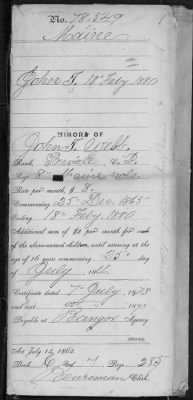 No. 78.549
Maine
John F. 18 Feby 1880
MINORS OF
John F. Webb
Rank Private Co. D.
Reg't 8" Maine Vols
Rate per month, $ 8.
Commencing 25" Dec. 1865
Ending 18" Feby. 1880
Additional sum of $2 per month for each
of the above-named children, until arriving at the
age of 16 years commencing 25" day
of July 1866.
Certificate dated 7" July 1873
and 1873
Payable at Bangor Agency.
Act July 14, 1862.
Book Vol. Page 285
Clerk.